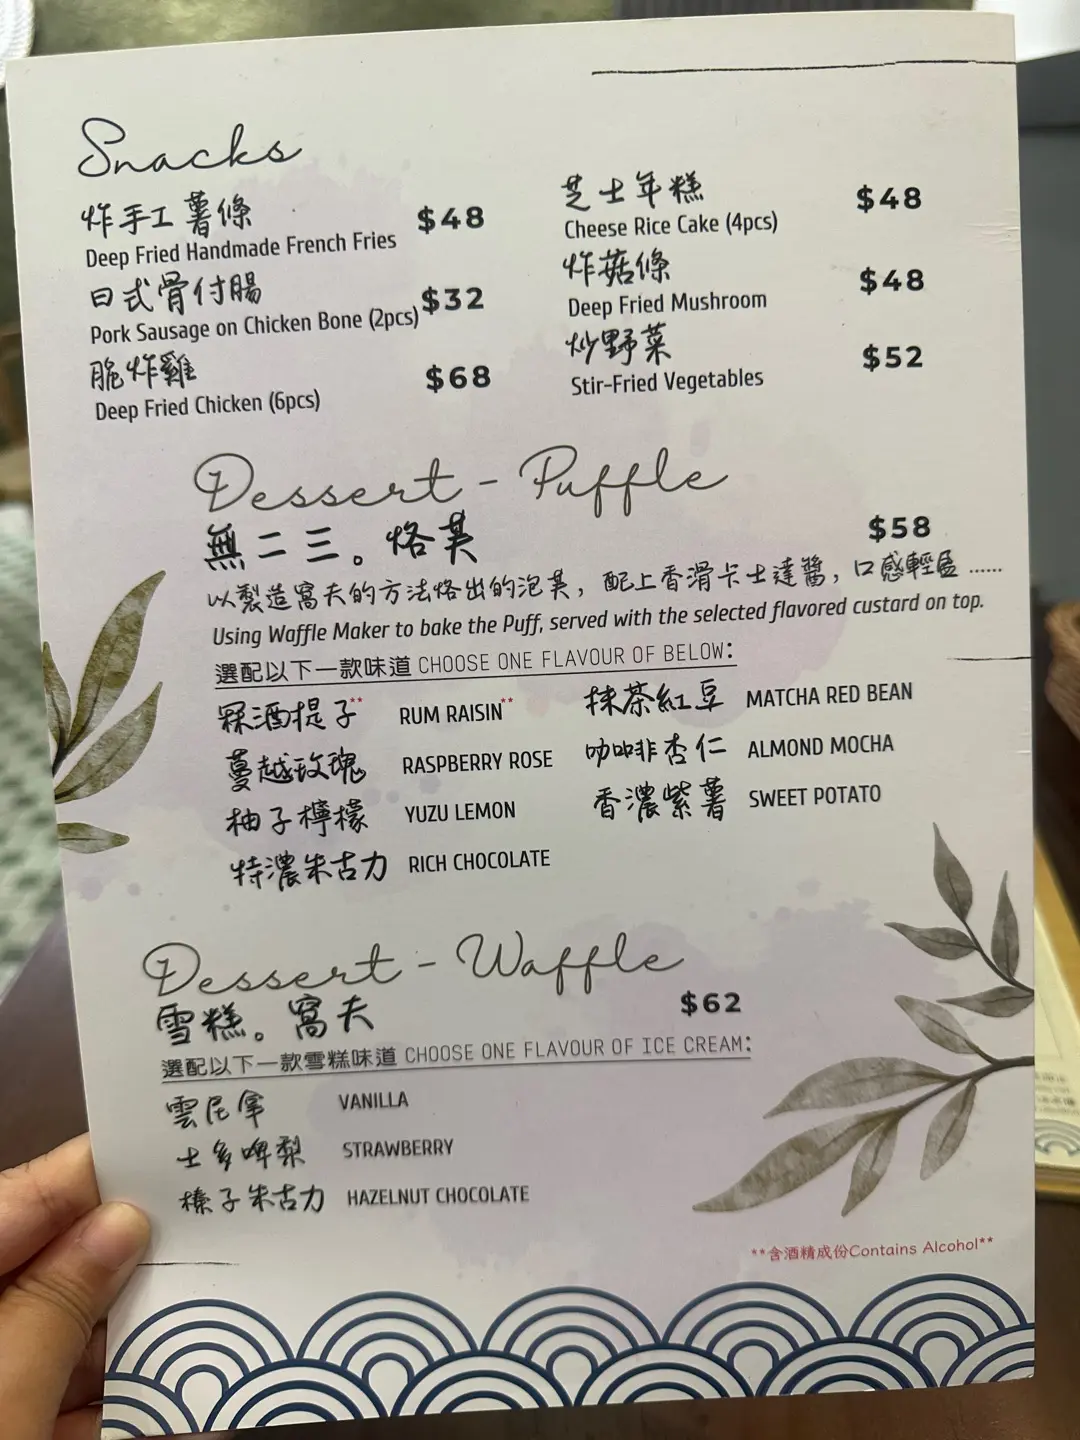 Snacks
炸手工薯條 $48
Deep Fried Handmade French Fries
日式骨付腸 $32
Pork Sausage on Chicken Bone (2pcs)
脆炸雞 $68
Deep Fried Chicken (6pcs)
芝士年糕 $48
Cheese Rice Cake (4pcs)
炸菇條 $48
Deep Fried Mushroom
炒野菜 $52
Stir-Fried Vegetables
Dessert - Puffle
無二三。烙芙 $58
以製造窩夫的方法烙出的泡芙，配上香滑卡士達醬，口感輕盈......
Using Waffle Maker to bake the Puff, served with the selected flavored custard on top.
選配以下一款味道 CHOOSE ONE FLAVOUR OF BELOW:
冧酒提子** RUM RAISIN**
蔓越玫瑰 RASPBERRY ROSE
柚子檸檬 YUZU LEMON
特濃朱古力 RICH CHOCOLATE
抹茶紅豆 MATCHA RED BEAN
咖啡杏仁 ALMOND MOCHA
香濃紫薯 SWEET POTATO
Dessert - Waffle
雪糕。窩夫 $62
選配以下一款雪糕味道 CHOOSE ONE FLAVOUR OF ICE CREAM:
雲尼拿 VANILLA
士多啤梨 STRAWBERRY
榛子朱古力 HAZELNUT CHOCOLATE
**含酒精成份Contains Alcohol**